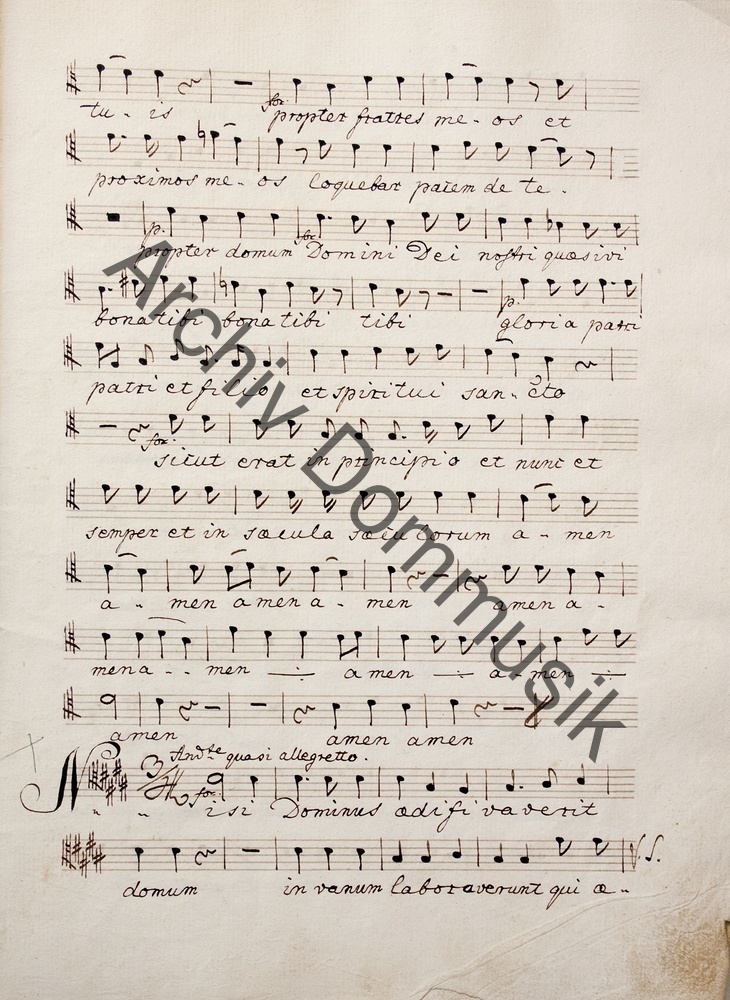 tu - is for: propter fratres me - os et
proximos me - os loquebar pacem de te.
p. propter domum for: Domini Dei nostri quæsivi
bona tibi bona tibi tibi p. gloria patri
patri et filio et spiritui san - cto
for: sicut erat in principio et nunc et
semper et in sæcula sæculorum a - men
a - men amen a - men amen a -
men a - - men amen a - men
amen amen amen
And:te quasi allegretto.
3/4 for: Nisi Dominus ædifivaverit
domum in vanum laboraverunt qui æ -
V. S.
Archiv Dommusik